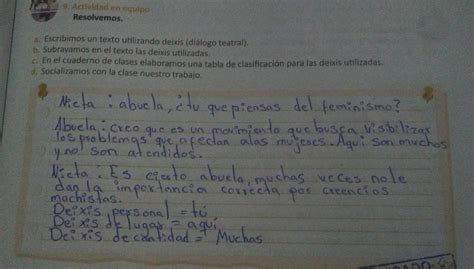 9. Actividad en equipo
Resolvemos.
a. Escribimos un texto utilizando deixis (diálogo teatral).
b. Subrayamos en el texto las deixis utilizadas.
c. En el cuaderno de clases elaboramos una tabla de clasificación para las deixis utilizadas.
d. Socializamos con la clase nuestro trabajo.
Nieta : abuela, ¿tu que piensas del feminismo?
Abuela : creo que es un movimiento que busca visibilizar
los problemas que afectan alas mujeses. Aqui son muchos
y no son atendidos.
Nieta : Es cieto abuela, muchas veces note
dan la importancia correcta por creencios
machistas.
Deixis personal = tú,
Deixis de lugar = aquí,
Deixis de cantidad = Muchos